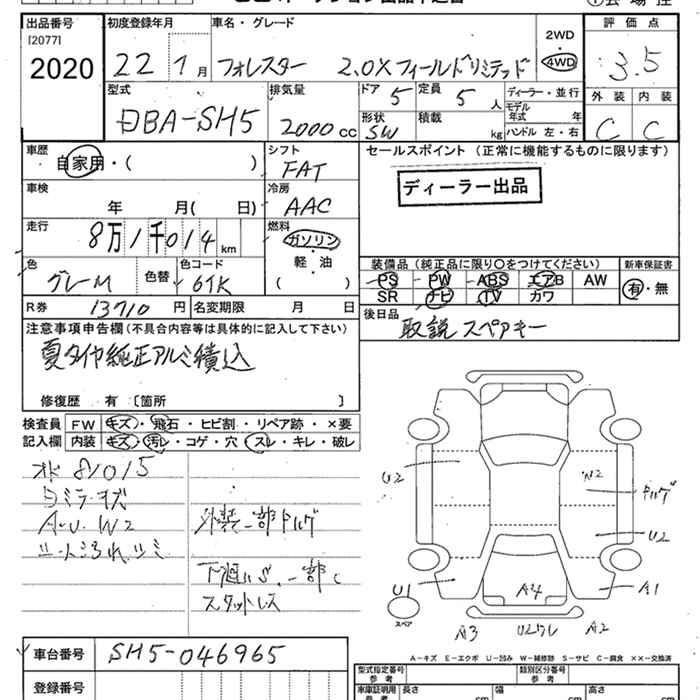 出品番号
[2077]
2020
初度登録年月
22 1月
車名・グレード
フォレスター 2.0Xフィールドリミテッド
2WD
4WD
評価点
3.5
外装 内装
C C
型式
DBA-SH5
排気量
2000cc
ドア
5
定員
5人
形状
SW
積載
kg
ディーラー・並行
モデル年式 年
ハンドル 左・右
車歴
自家用・( )
シフト
FAT
車検
年 月( 日)
冷房
AAC
走行
8万1千014km
燃料
ガソリン
軽・油
( )
色
グレーM
色替
色コード
61K
R券 13710円
名変期限 月 日
セールスポイント (正常に機能するものに限ります)
ディーラー出品
装備品(純正品に限り○をつけてください)
PS PW ABS エアB AW
SR ナビ TV カワ
新車保証書
有・無
後日品
取説 スペアキー
注意事項申告欄(不具合内容等は具体的に記入して下さい)
夏タイヤ純正アルミ積込
修復歴 有 〔箇所 〕
検査員
記入欄
FW キズ・飛石・ヒビ割・リペア跡・×要
内装 キズ・汚レ・コゲ・穴・スレ・キレ・破レ
81015
A-U. W2
外装一部
下廻りS.一部C
スタットレス
U2
W2
U2
U1
スペア
A4
A1
A3
A2
A-キズ E-エクボ U-凹み W-補修跡 S-サビ C-腐食 ××-交換済
車台番号
SH5-046965
登録番号
型式指定番号
参考
類別区分番号
参考
車庫証明用
参考
長さ cm
幅 cm
高さ cm